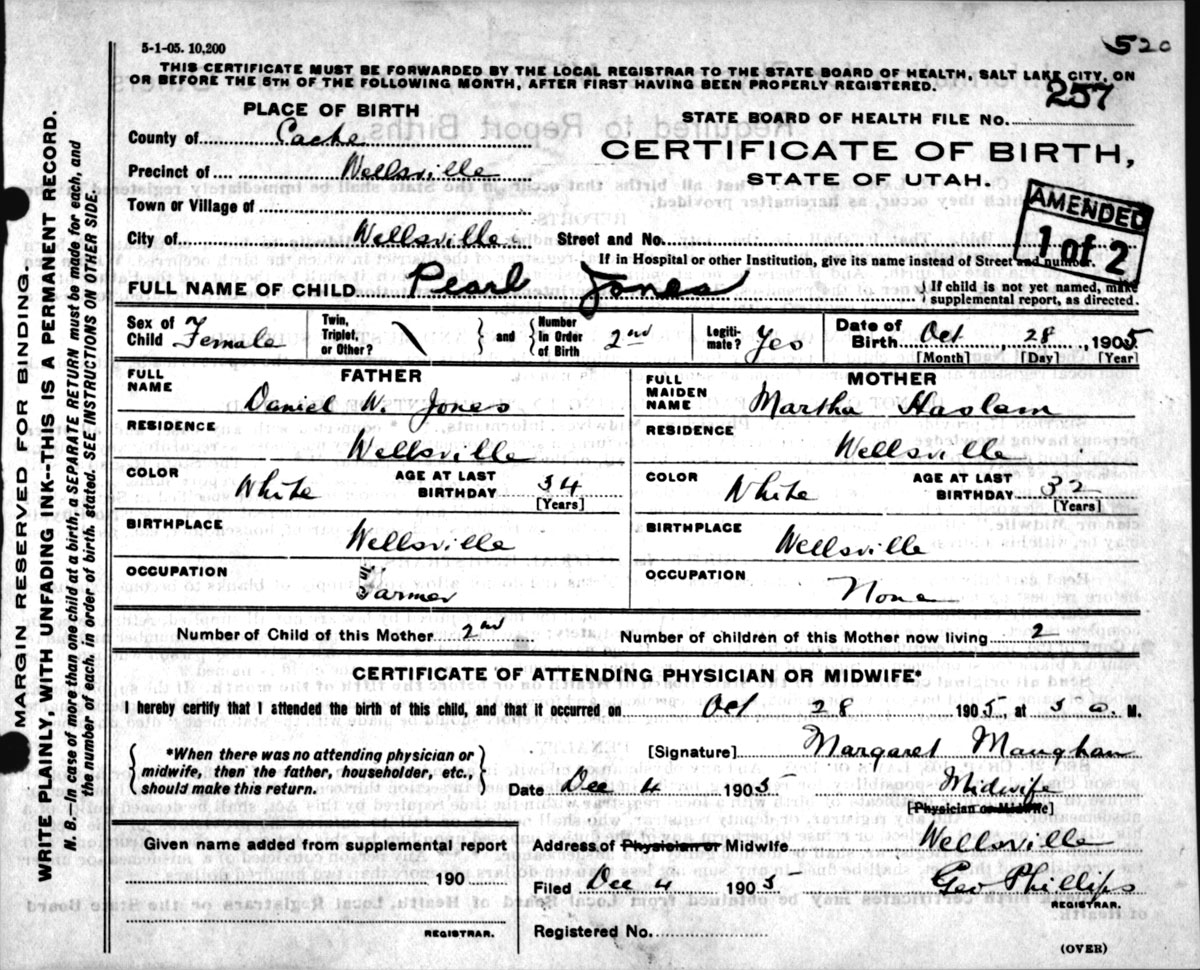 5-1-05. 10,200
520
THIS CERTIFICATE MUST BE FORWARDED BY THE LOCAL REGISTRAR TO THE STATE BOARD OF HEALTH, SALT LAKE CITY, ON
OR BEFORE THE 5TH OF THE FOLLOWING MONTH, AFTER FIRST HAVING BEEN PROPERLY REGISTERED.
257
PLACE OF BIRTH
STATE BOARD OF HEALTH FILE NO.
County of Cache
CERTIFICATE OF BIRTH,
Precinct of Wellsville
STATE OF UTAH.
Town or Village of
AMENDED
1 of 2
City of Wellsville Street and No.
If in Hospital or other Institution, give its name instead of Street and number.
FULL NAME OF CHILD Pearl Jones
If child is not yet named, make
supplemental report, as directed.
Sex of Child Female
Twin, Triplet, or Other? \ and Number In Order of Birth 2nd
Legitimate? Yes
Date of Birth Oct, 28, 1905
[Month] [Day] [Year]
FATHER
FULL NAME Daniel W. Jones
RESIDENCE Wellsville
COLOR White AGE AT LAST BIRTHDAY 34
[Years]
BIRTHPLACE Wellsville
OCCUPATION Farmer
MOTHER
FULL MAIDEN NAME Martha Haslam
RESIDENCE Wellsville
COLOR White AGE AT LAST BIRTHDAY 32
[Years]
BIRTHPLACE Wellsville
OCCUPATION None
Number of Child of this Mother 2nd Number of children of this Mother now living 2
CERTIFICATE OF ATTENDING PHYSICIAN OR MIDWIFE*
I hereby certify that I attended the birth of this child, and that it occurred on Oct 28 1905, at 3 a. M.
*When there was no attending physician or
midwife, then the father, householder, etc.,
should make this return.
[Signature] Margaret Maughan
Date Dec 4 1905 Midwife
[Physician or Midwife]
Given name added from supplemental report
190
REGISTRAR.
Address of Physician or Midwife Wellsville
Filed Dec 4 1905 Geo Phillips
REGISTRAR.
Registered No.
(OVER)
MARGIN RESERVED FOR BINDING.
WRITE PLAINLY, WITH UNFADING INK--THIS IS A PERMANENT RECORD.
N. B.--In case of more than one child at a birth, a SEPARATE RETURN must be made for each, and
the number of each, in order of birth, stated. SEE INSTRUCTIONS ON OTHER SIDE.